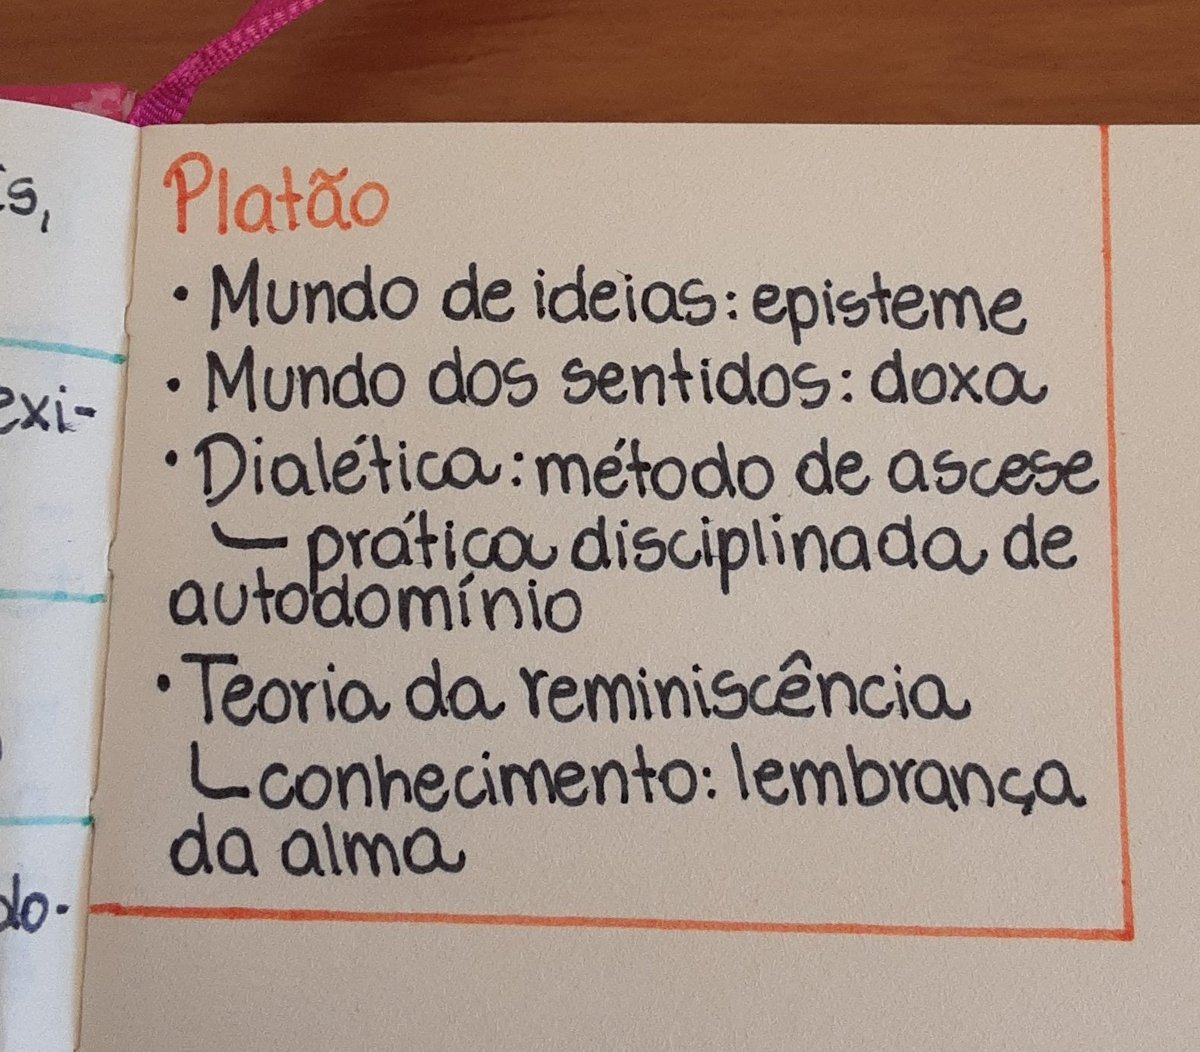 Platão
• Mundo de ideias: episteme
• Mundo dos sentidos: doxa
• Dialética: método de ascese
prática disciplinada de
autodomínio
• Teoria da reminiscência
conhecimento: lembrança
da alma
is,
exi-
olo.